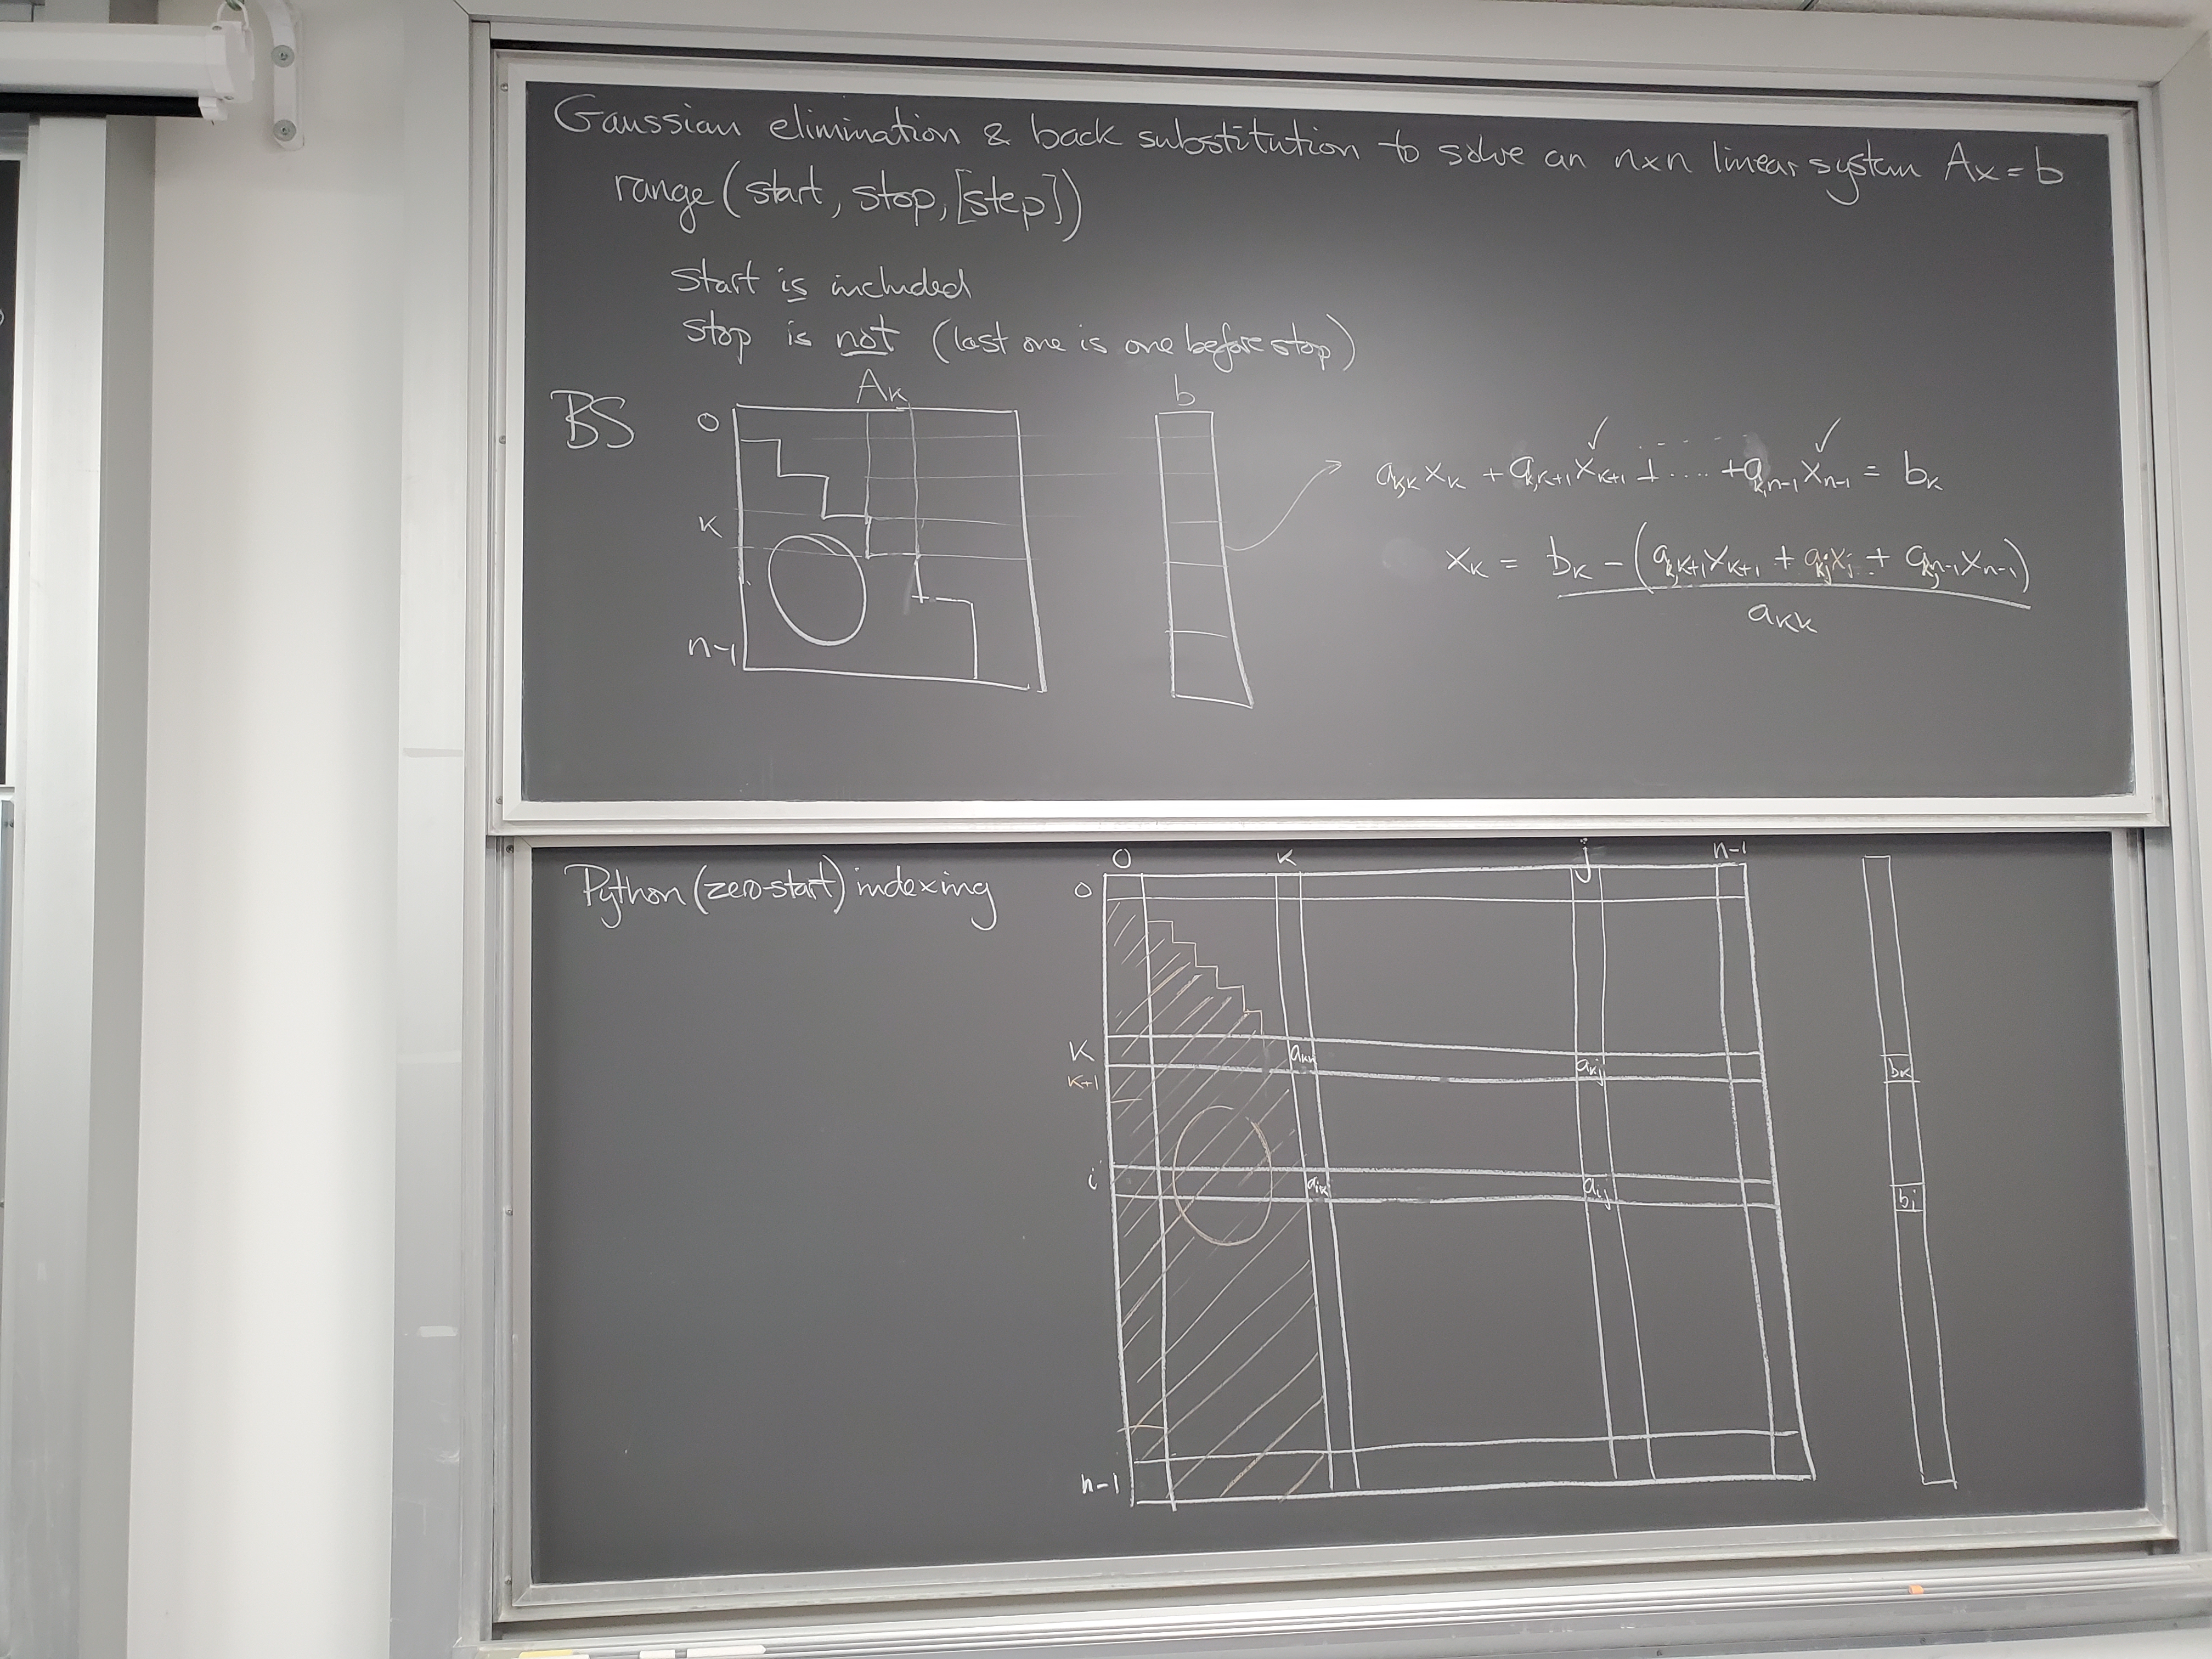 Gaussian elimination & back substitution to solve an n×n linear system Ax = b
range(start, stop, [step])
start is included
stop is not (last one is one before stop)
BS
Ak
b
0
k
n-1
✓ - - - - ✓
ak,k xk + ak,k+1 xk+1 + .... + ak,n-1 xn-1 = bk
xk = bk - (ak,k+1 xk+1 + akj xj + ak,n-1 xn-1)
akk
Python (zero-start) indexing
0 k j n-1
0
k
akk akj bk
k+1
i
aik aij bi
n-1